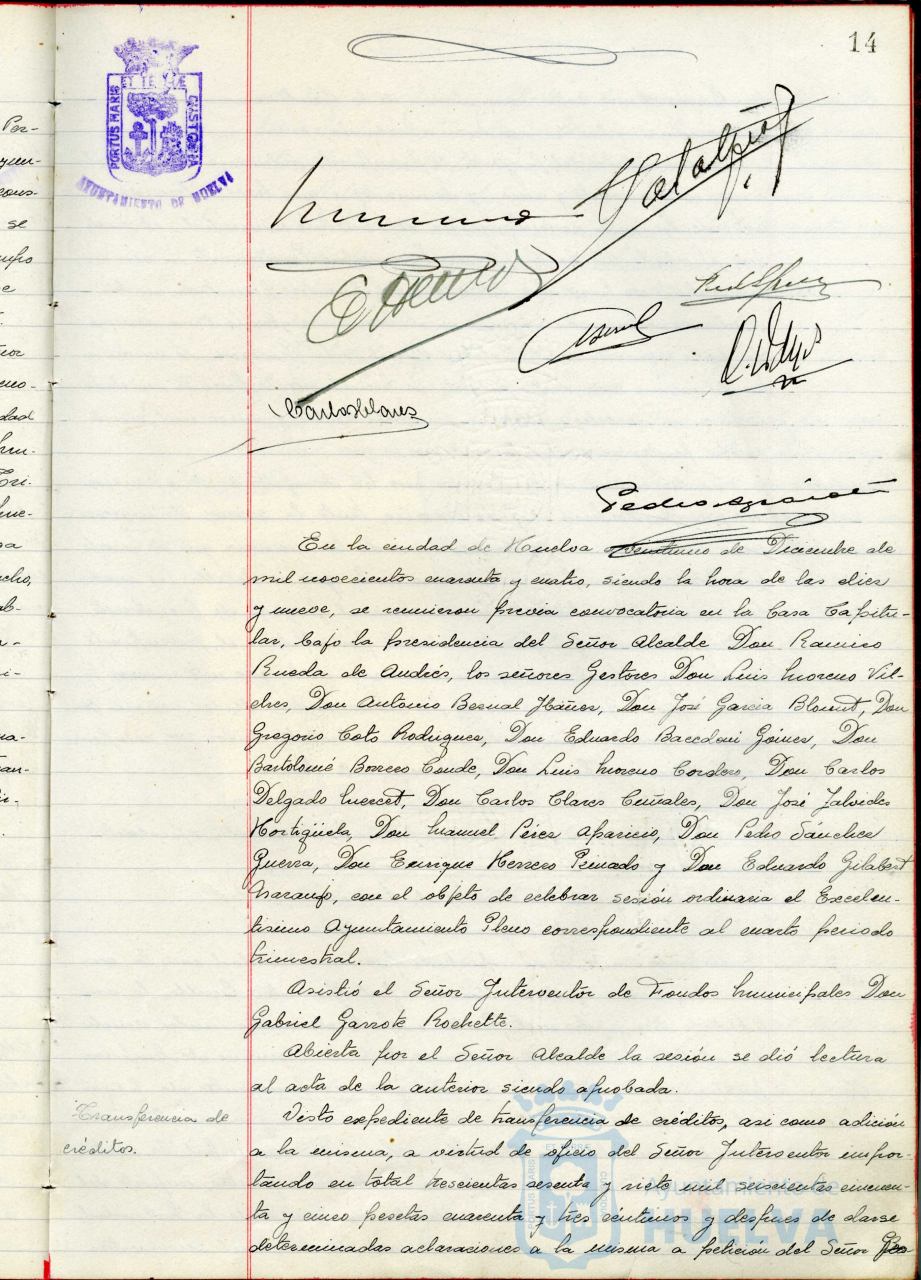 14
PORTUS MARIS
ET TERRAE
CUSTODIA
AYUNTAMIENTO DE HUELVA
Carlos Clares
En la ciudad de Huelva a veintiuno de Diciembre de
mil novecientos cuarenta y cuatro, siendo la hora de las diez
y nueve, se reunieron previa convocatoria en la Casa Capitu-
lar, bajo la presidencia del Señor Alcalde Don Ramiro
Rueda de Andrés, los señores Gestores Don Luis Moreno Vil-
ches, Don Antonio Bernal Ibáñez, Don José Garcia Blount, Don
Gregorio Coto Rodriguez, Don Eduardo Gómez, Don
Bartolomé Borrero Conde, Don Luis Moreno Cordero, Don Carlos
Delgado Don Carlos Clares Ceñales, Don José
Hortigüela, Don Manuel Pérez Aparicio, Don Pedro Sánchez
Guerra, Don Enrique Herrero Peinado y Don Eduardo Gilabert
Naranjo, con el objeto de celebrar sesión ordinaria el Excelen-
tisimo Ayuntamiento Pleno correspondiente al cuarto periodo
trimestral.
Asistió el Señor Interventor de Fondos Municipales Don
Gabriel Garrote Rochette.
Abierta por el Señor Alcalde la sesión se dió lectura
al acta de la anterior siendo aprobada.
Transferencia de
créditos.
Visto expediente de transferencia de créditos, asi como adición
a la misma, a virtud de oficio del Señor Interventor impor-
tando en total trescientas sesenta y siete mil seiscientas cincuen-
ta y cinco pesetas cuarenta y tres céntimos y despues de darse
determinadas aclaraciones a la misma a petición del Señor
Ayuntamiento de
HUELVA